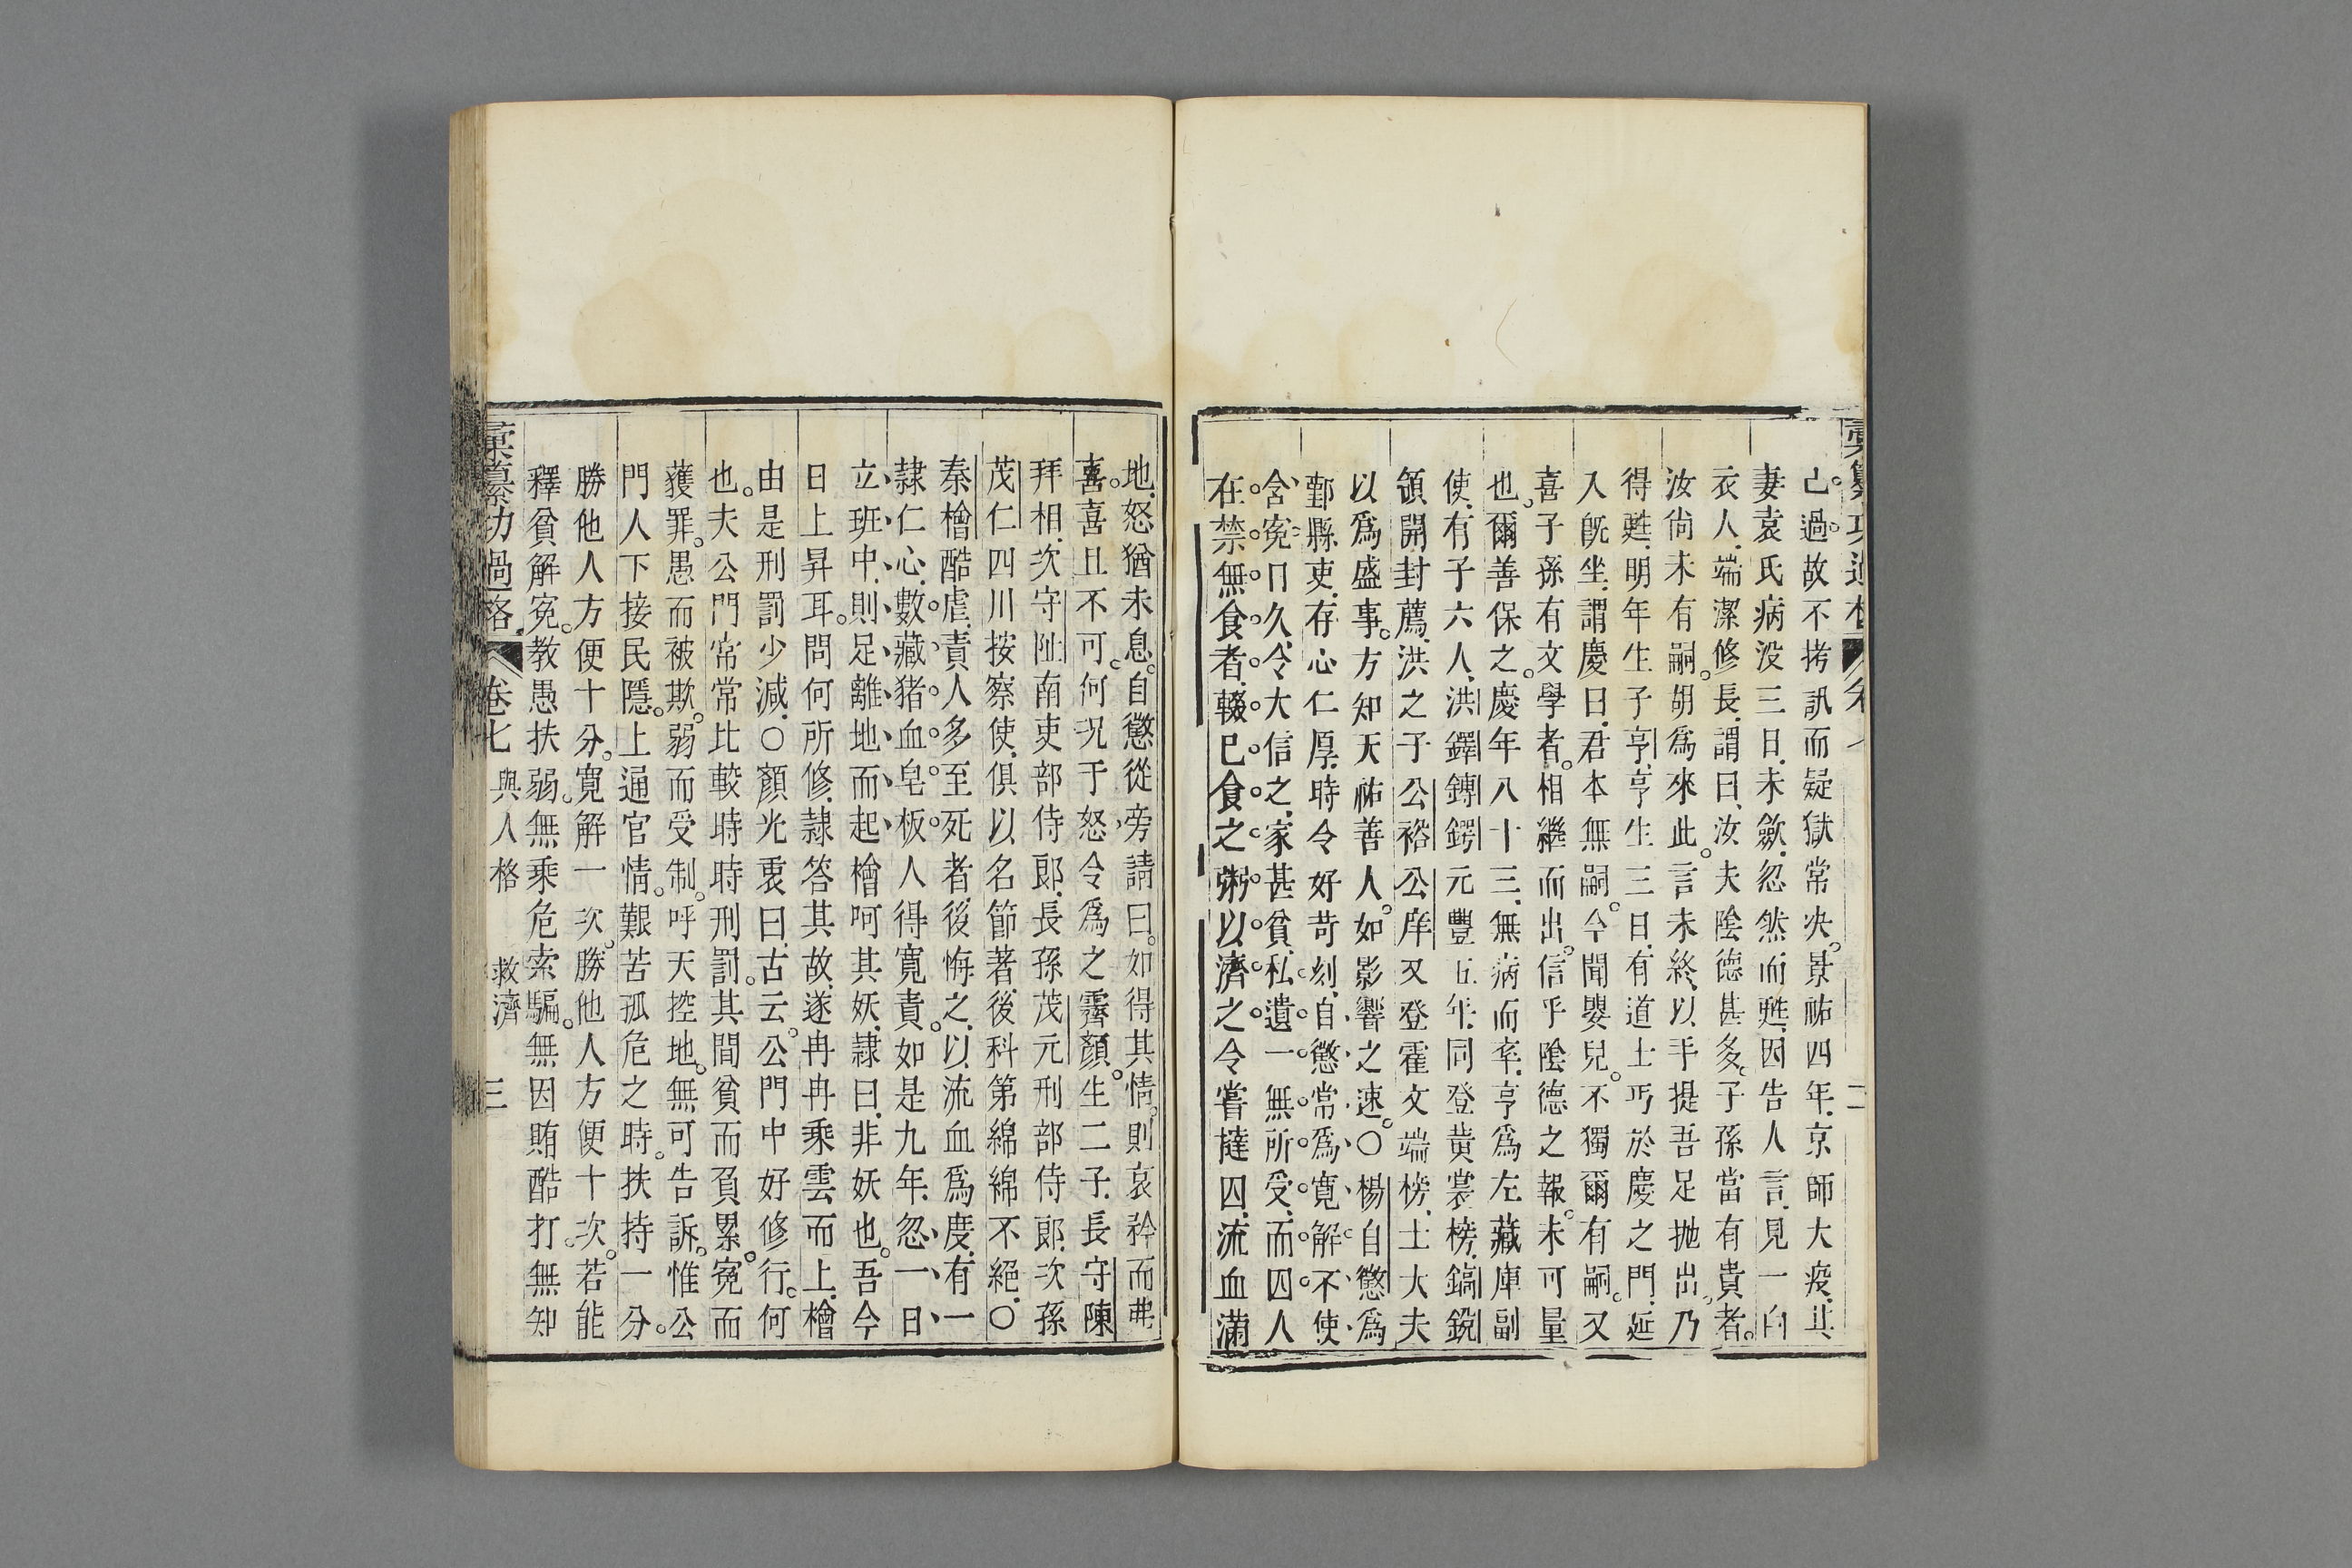 彙纂功過格 卷七 二
已過。故不拷訊而疑獄常決。景祐四年京師大疫其
妻袁氏病没三日未歛忽然而甦因告人言見一白
衣人端潔修長謂曰汝夫陰德甚多。子孫當有貴者。
汝尚未有嗣。胡爲來此。言未終以手提吾足抛出。乃
得甦明年生子亨亨生三日有道士丐於慶之門延
入旣坐謂慶曰君本無嗣。今聞嬰兒。不獨爾有嗣。又
喜子孫有文學者。相繼而出。信乎陰德之報。未可量
也。爾善保之。慶年八十三無病而卒亨爲左藏庫副
使有子六人洪鐸鏄鍔元豐五年同登黄裳榜鎬銳
領開封薦洪之子公裕公庠又登霍文端榜士大夫
以爲盛事。方知天祐善人。如影響之速。〇楊自懲爲
鄞縣吏存心仁厚時令好苛刻自懲常爲寛解不使
含寃日久令大信之家甚貧私遺一無所受而囚人
在禁無食者輟已食之粥以濟之令嘗撻囚流血滿
地怒猶未息。自懲從旁請曰。如得其情。則哀矜而弗
喜。喜且不可。何况于怒令爲之霽顏。生二子長守陳
拜相次守阯南吏部侍郎長孫茂元刑部侍郎次孫
茂仁四川按察使俱以名節著後科第綿綿不絕〇
秦檜酷虐責人多至死者後悔之以流血爲度有一
隷仁心數藏猪血皂板人得寛責。如是九年忽一日
立班中則足離地而起檜呵其妖隷曰非妖也。吾今
日上昇耳。問何所修隷答其故遂冉冉乘雲而上檜
由是刑罰少減〇顏光衷曰古云。公門中好修行。何
也。夫公門常常比較時時刑罰。其間貧而負累。寃而
獲罪。愚而被欺。弱而受制。呼天控地。無可告訴。惟公
門人下接民隱。上通官情。艱苦孤危之時。扶持一分。
勝他人方便十分。寛解一次。勝他人方便十次。若能
釋貧解寃。教愚扶弱。無乘危索騙。無因賄酷打。無知
彙纂功過格 卷七 與人格 救濟 三